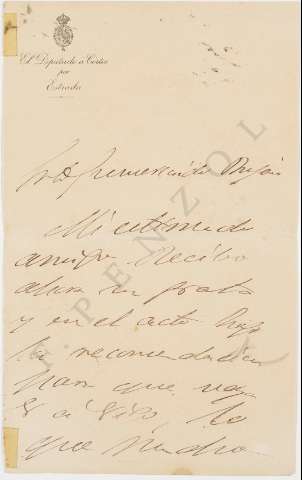 El Diputado a Cortes
por
Estrada
Sr D. Gumersindo
Mi estimado
amigo. Recibo
ahora su grata
y en el acto hago
la recomendación
para que
a Vigo, lo
que
PENZOL